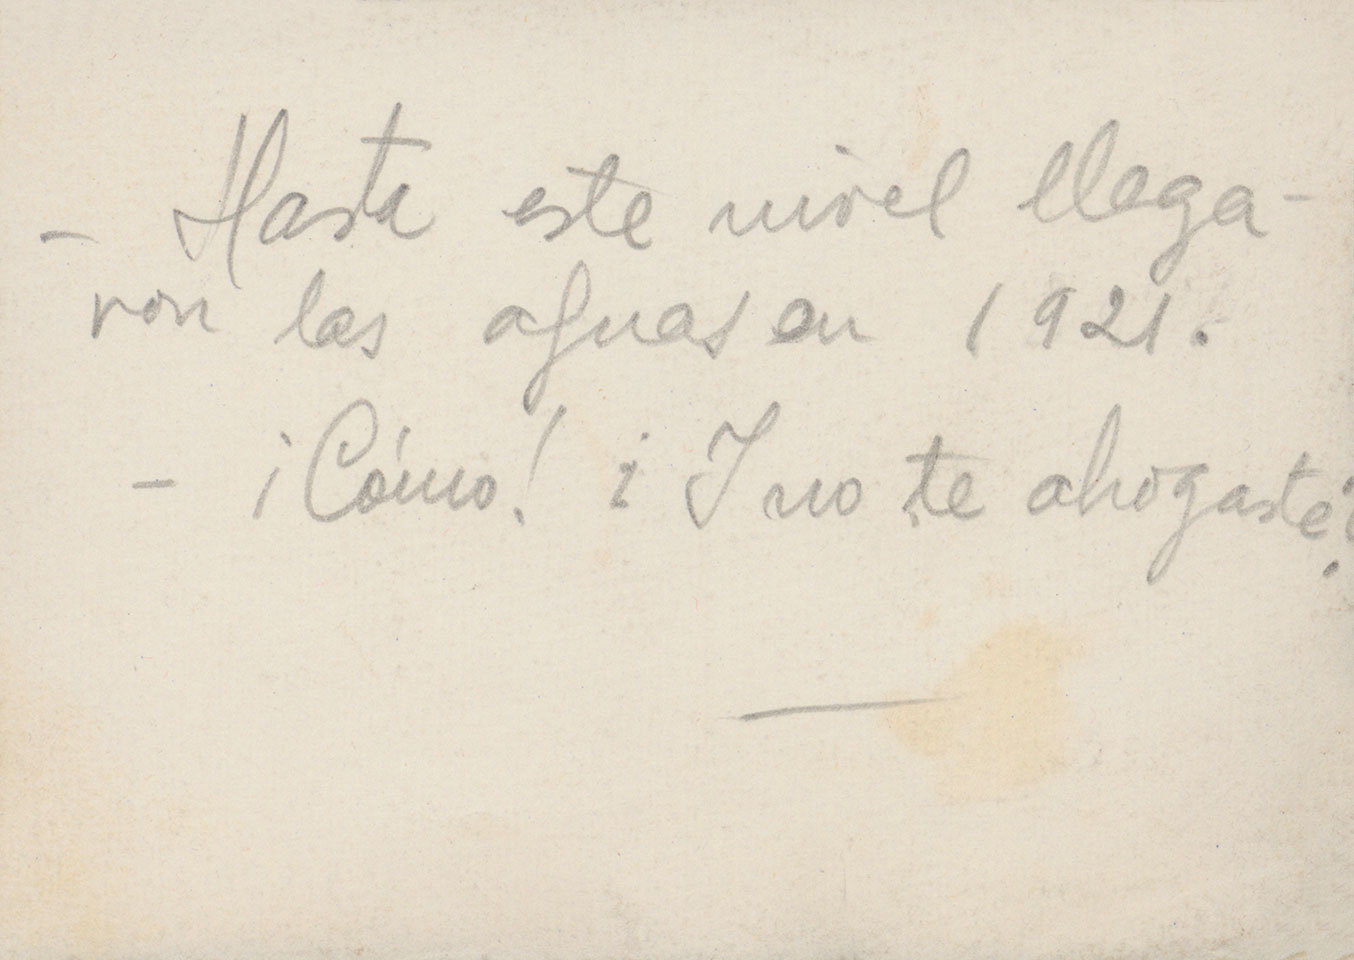 - Hasta este nivel llega-
ron las aguas en 1921.
- ¡Cómo! ¿Y no te ahogaste?